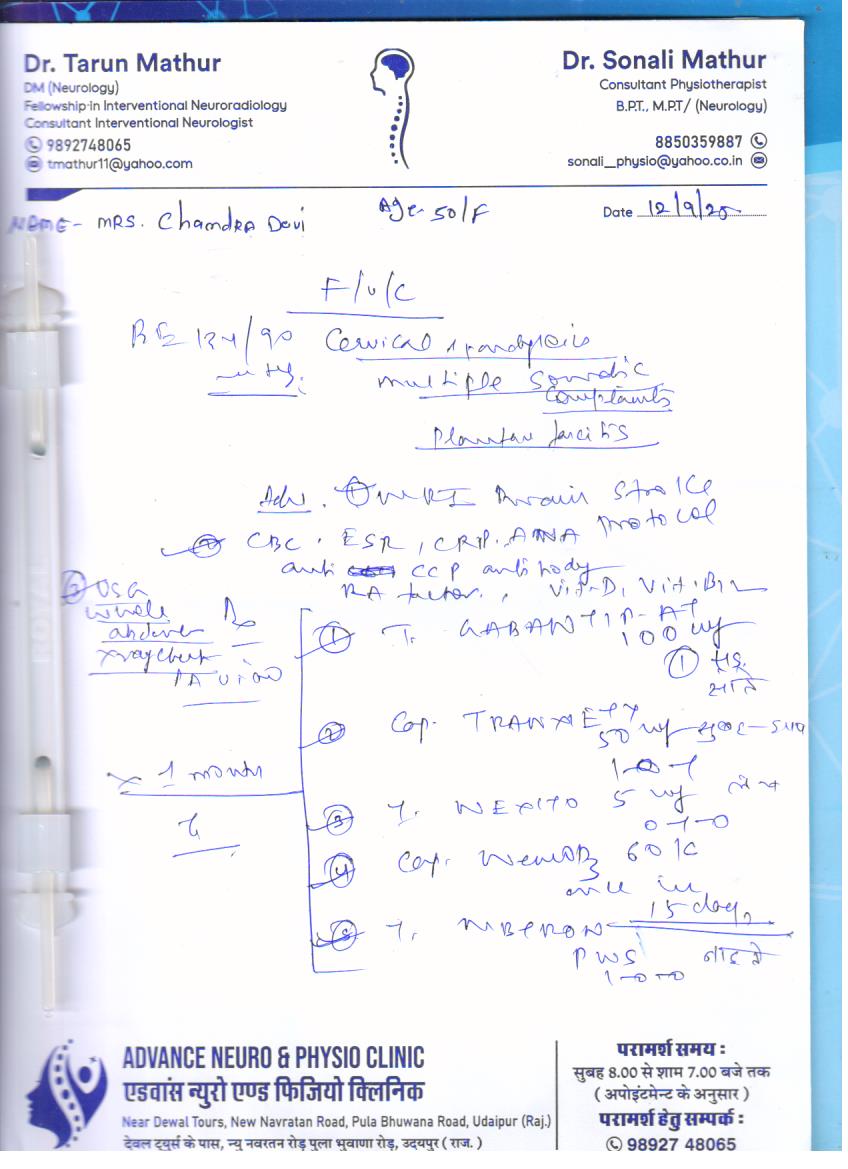 Dr. Tarun Mathur
DM (Neurology)
Fellowship in Interventional Neuroradiology
Consultant Interventional Neurologist
9892748065
tmathur11@yahoo.com
Dr. Sonali Mathur
Consultant Physiotherapist
B.P.T., M.P.T/ (Neurology)
8850359887
sonali_physio@yahoo.co.in
NAME - MRS. Chandra Devi
Age 50/F
Date 12/9/25
F/U/C
Cervical spondylosis
multiple somatic
complaints
Plantar fascitis
Adv. ① MRI Brain Stroke
Protocol
② CBC. ESR, CRP. ANA
anti CCP antibody
RA factor., Vit.D, Vit.B12
③ USG
whole
abdomen
xray chest
PA view
Rx
① T. GABANTIP-AT
100 mg
①
② Cap. TRANXE
50 mg सुबह -
③ T. NEXITO 5 mg
0-1-0
④ Cap. 60K
once in
15 days
⑤ T.
1-0-0
x 1 month
ADVANCE NEURO & PHYSIO CLINIC
एडवांस न्युरो एण्ड फिजियो क्लिनिक
Near Dewal Tours, New Navratan Road, Pula Bhuwana Road, Udaipur (Raj.)
देवल टूयुर्स के पास, न्यु नवरतन रोड़ पुला भुवाणा रोड़, उदयपुर ( राज. )
परामर्श समय :
सुबह 8.00 से शाम 7.00 बजे तक
( अपोइंटमेन्ट के अनुसार )
परामर्श हेतु सम्पर्क :
98927 48065